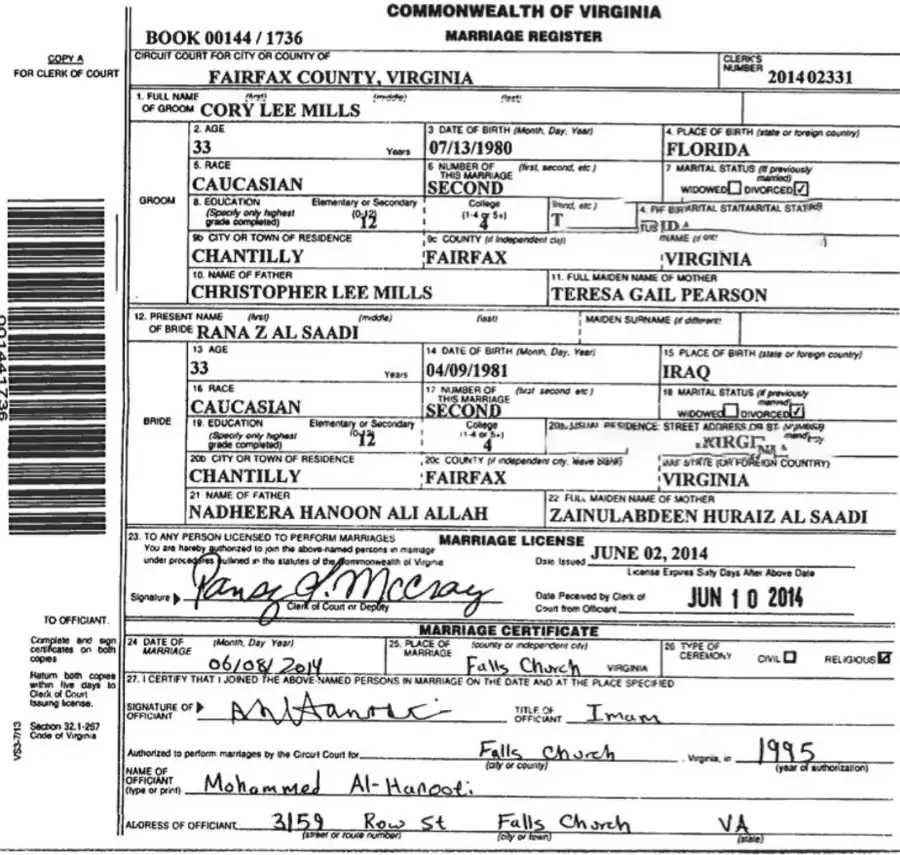 COMMONWEALTH OF VIRGINIA
BOOK 00144 / 1736 MARRIAGE REGISTER
COPY A
FOR CLERK OF COURT
CIRCUIT COURT FOR CITY OR COUNTY OF
FAIRFAX COUNTY, VIRGINIA
CLERK'S NUMBER 201402331
1. FULL NAME OF GROOM (first) (middle) (last)
CORY LEE MILLS
GROOM
2. AGE 33 Years
3 DATE OF BIRTH (Month, Day, Year) 07/13/1980
4. PLACE OF BIRTH (state or foreign country) FLORIDA
5. RACE CAUCASIAN
6 NUMBER OF THIS MARRIAGE (first, second, etc) SECOND
7 MARITAL STATUS (If previously married) WIDOWED DIVORCED ✓
8. EDUCATION (Specify only highest grade completed) Elementary or Secondary (0-12) 12 College (1-4 or 5+) 4
9b CITY OR TOWN OF RESIDENCE CHANTILLY
9c COUNTY (if independent city) FAIRFAX
VIRGINIA
10. NAME OF FATHER CHRISTOPHER LEE MILLS
11. FULL MAIDEN NAME OF MOTHER TERESA GAIL PEARSON
12. PRESENT NAME OF BRIDE (first) (middle) (last)
RANA Z AL SAADI
MAIDEN SURNAME (if different)
BRIDE
13 AGE 33 Years
14 DATE OF BIRTH (Month, Day, Year) 04/09/1981
15 PLACE OF BIRTH (state or foreign country) IRAQ
16 RACE CAUCASIAN
17 NUMBER OF THIS MARRIAGE (first second etc) SECOND
18 MARITAL STATUS (If previously married) WIDOWED DIVORCED ✓
19. EDUCATION (Specify only highest grade completed) Elementary or Secondary (0-12) 12 College (1-4 or 5+) 4
20a. USUAL RESIDENCE: STREET ADDRESS OR ST. NUMBER
20b CITY OR TOWN OF RESIDENCE CHANTILLY
20c COUNTY (if independent city, leave blank) FAIRFAX
STATE (OR FOREIGN COUNTRY) VIRGINIA
21 NAME OF FATHER NADHEERA HANOON ALI ALLAH
22 FULL MAIDEN NAME OF MOTHER ZAINULABDEEN HURAIZ AL SAADI
23. TO ANY PERSON LICENSED TO PERFORM MARRIAGES
You are hereby authorized to join the above-named persons in marriage
under procedures outlined in the statutes of the Commonwealth of Virginia
MARRIAGE LICENSE
Date Issued JUNE 02, 2014
License Expires Sixty Days After Above Date
Signature
Clerk of Court or Deputy
Date Received by Clerk of Court from Officiant JUN 10 2014
MARRIAGE CERTIFICATE
24 DATE OF MARRIAGE (Month, Day Year) 06/08/2014
25. PLACE OF MARRIAGE (county or independent city) Falls Church VIRGINIA
26 TYPE OF CEREMONY CIVIL RELIGIOUS ✓
27. I CERTIFY THAT I JOINED THE ABOVE NAMED PERSONS IN MARRIAGE ON THE DATE AND AT THE PLACE SPECIFIED
SIGNATURE OF OFFICIANT
TITLE OF OFFICIANT Imam
Authorized to perform marriages by the Circuit Court for Falls Church, Virginia, in 1995
(city or county) (year of authorization)
NAME OF OFFICIANT (type or print) Mohammed Al-Hanooti
ADDRESS OF OFFICIANT 3159 Row St Falls Church VA
(street or route number) (city or town) (state)
TO OFFICIANT.
Complete and sign
certificates on both
copies
Return both copies
within five days to
Clerk of Court
issuing license.
Section 32.1-267
Code of Virginia
VS3-7/13
001441736